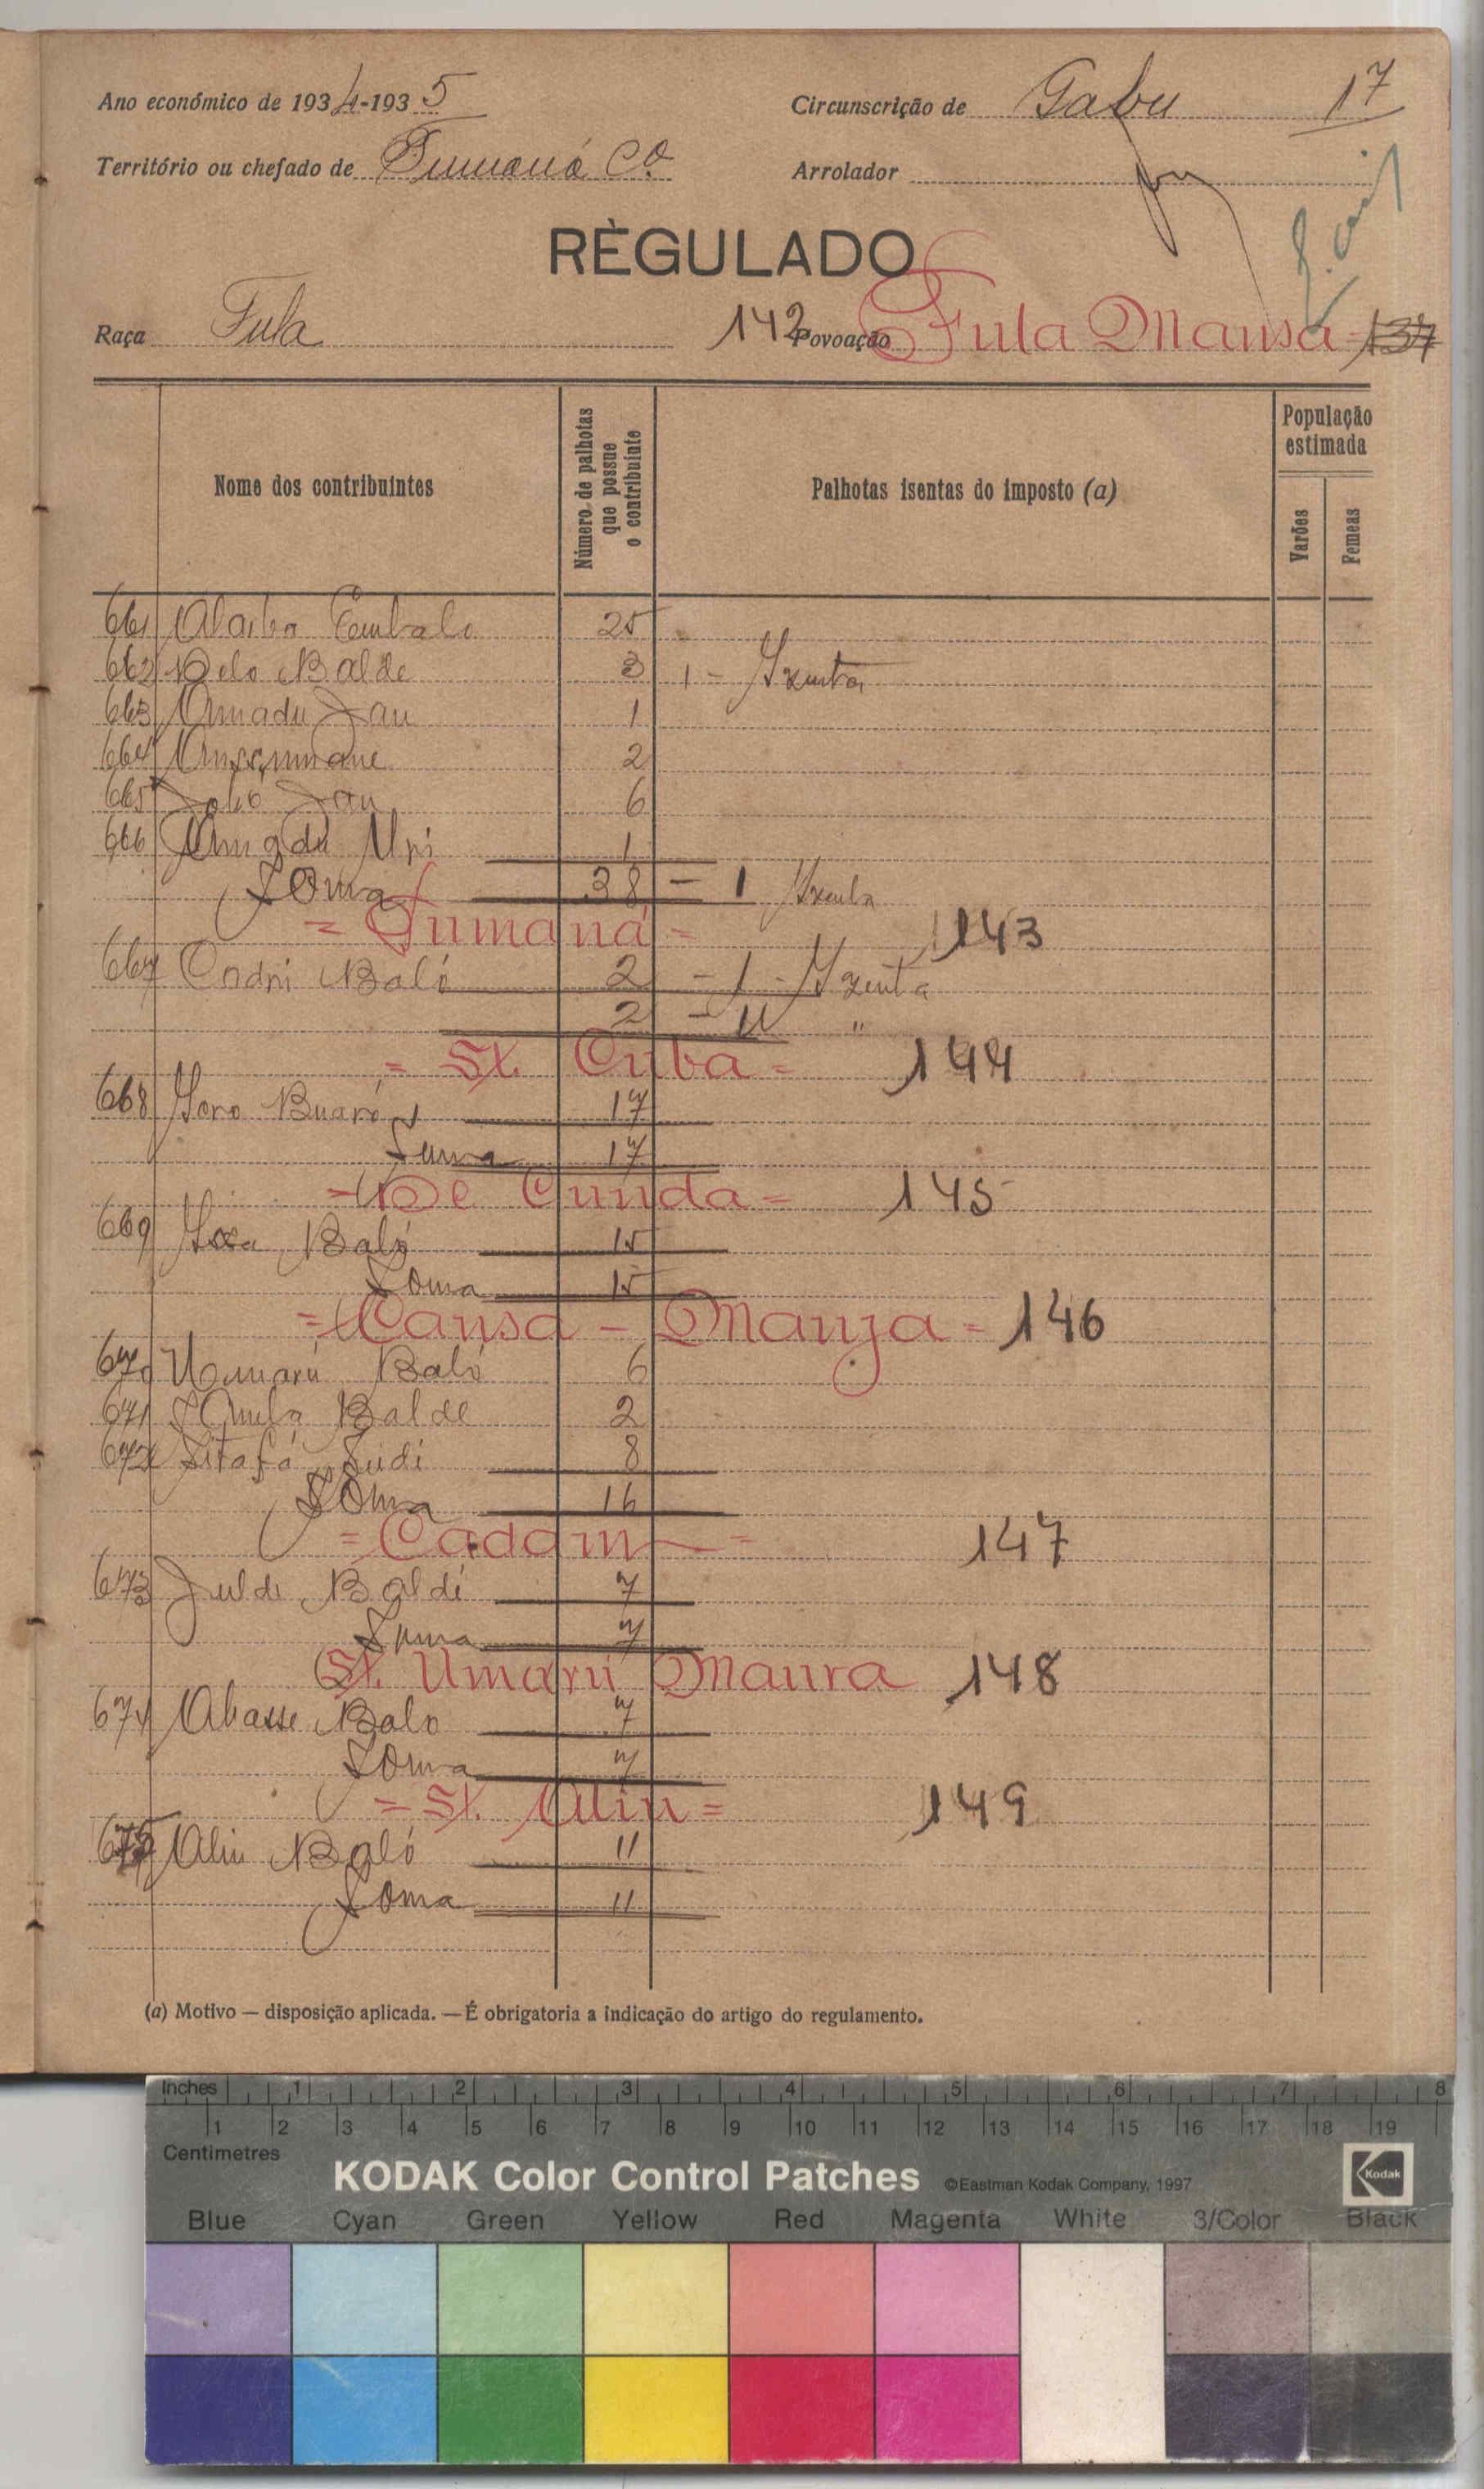 Ano económico de 1934-1935 Circunscrição de Gabu 17
Território ou chefado de Tumaná C.a Arrolador
RÈGULADO
Raça Fula 142 Povoação Fula Mansa - 137
Nome dos contribuintes
Número de palhotas que possue o contribuinte
Palhotas isentas do imposto (a)
População estimada
Varões Femeas
661 Alaiba Embalo 25
662 Delo Balde 3 1 - Izenta
663 Amadu Jau 1
664 2
665 Jau 6
666 Amadu Uri 1
Soma 38 - 1 Izenta
= Tumaná = 143
667 Cadri Baló 2 - 1 - Izenta
2 - "
= St. Cuba = 144
668 Buaró 17
Suma 17
= De Cunda = 145
669 Baló 15
Soma 15
= Cansa - Manja = 146
670 Umarú Baló 6
671 Balde 2
672 Sitafá Suidi 8
Soma 16
= Cadam = 147
673 Julde Baldé 7
Suma 7
St. Umarú Maura 148
674 Abasse Balo 7
Soma 7
= St. Aliu = 149
675 Aliu Baló 11
Soma 11
(a) Motivo — disposição aplicada. — É obrigatoria a indicação do artigo do regulamento.
Inches 1 2 3 4 5 6 7 8
1 2 3 4 5 6 7 8 9 10 11 12 13 14 15 16 17 18 19
Centimetres
KODAK Color Control Patches ©Eastman Kodak Company, 1997 Kodak
Blue Cyan Green Yellow Red Magenta White 3/Color Black